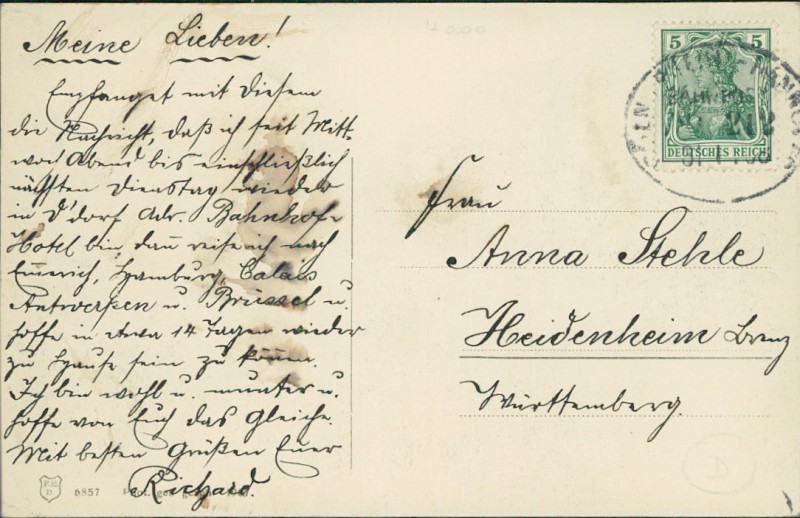 Meine Lieben!
Empfanget mit Diesem
die Nachricht, daß ich seit Mitt-
woch Abend bis einschließlich
nächsten Dienstag wieder
in D'dorf Adr. Bahnhof
Hotel bin, dann reise ich nach
Emmerich, Hamburg, Calais
Antwerpen u. Brüssel u.
hoffe in etwa 14 Tagen wieder
zu Hause sein zu können.
Ich bin wohl u. munter u.
hoffe von Euch das Gleiche.
Mit besten Grüßen Euer
Richard.
6857
5 5
DEUTSCHES REICH
Frau
Anna Stehle
Heidenheim Brenz
Württemberg.